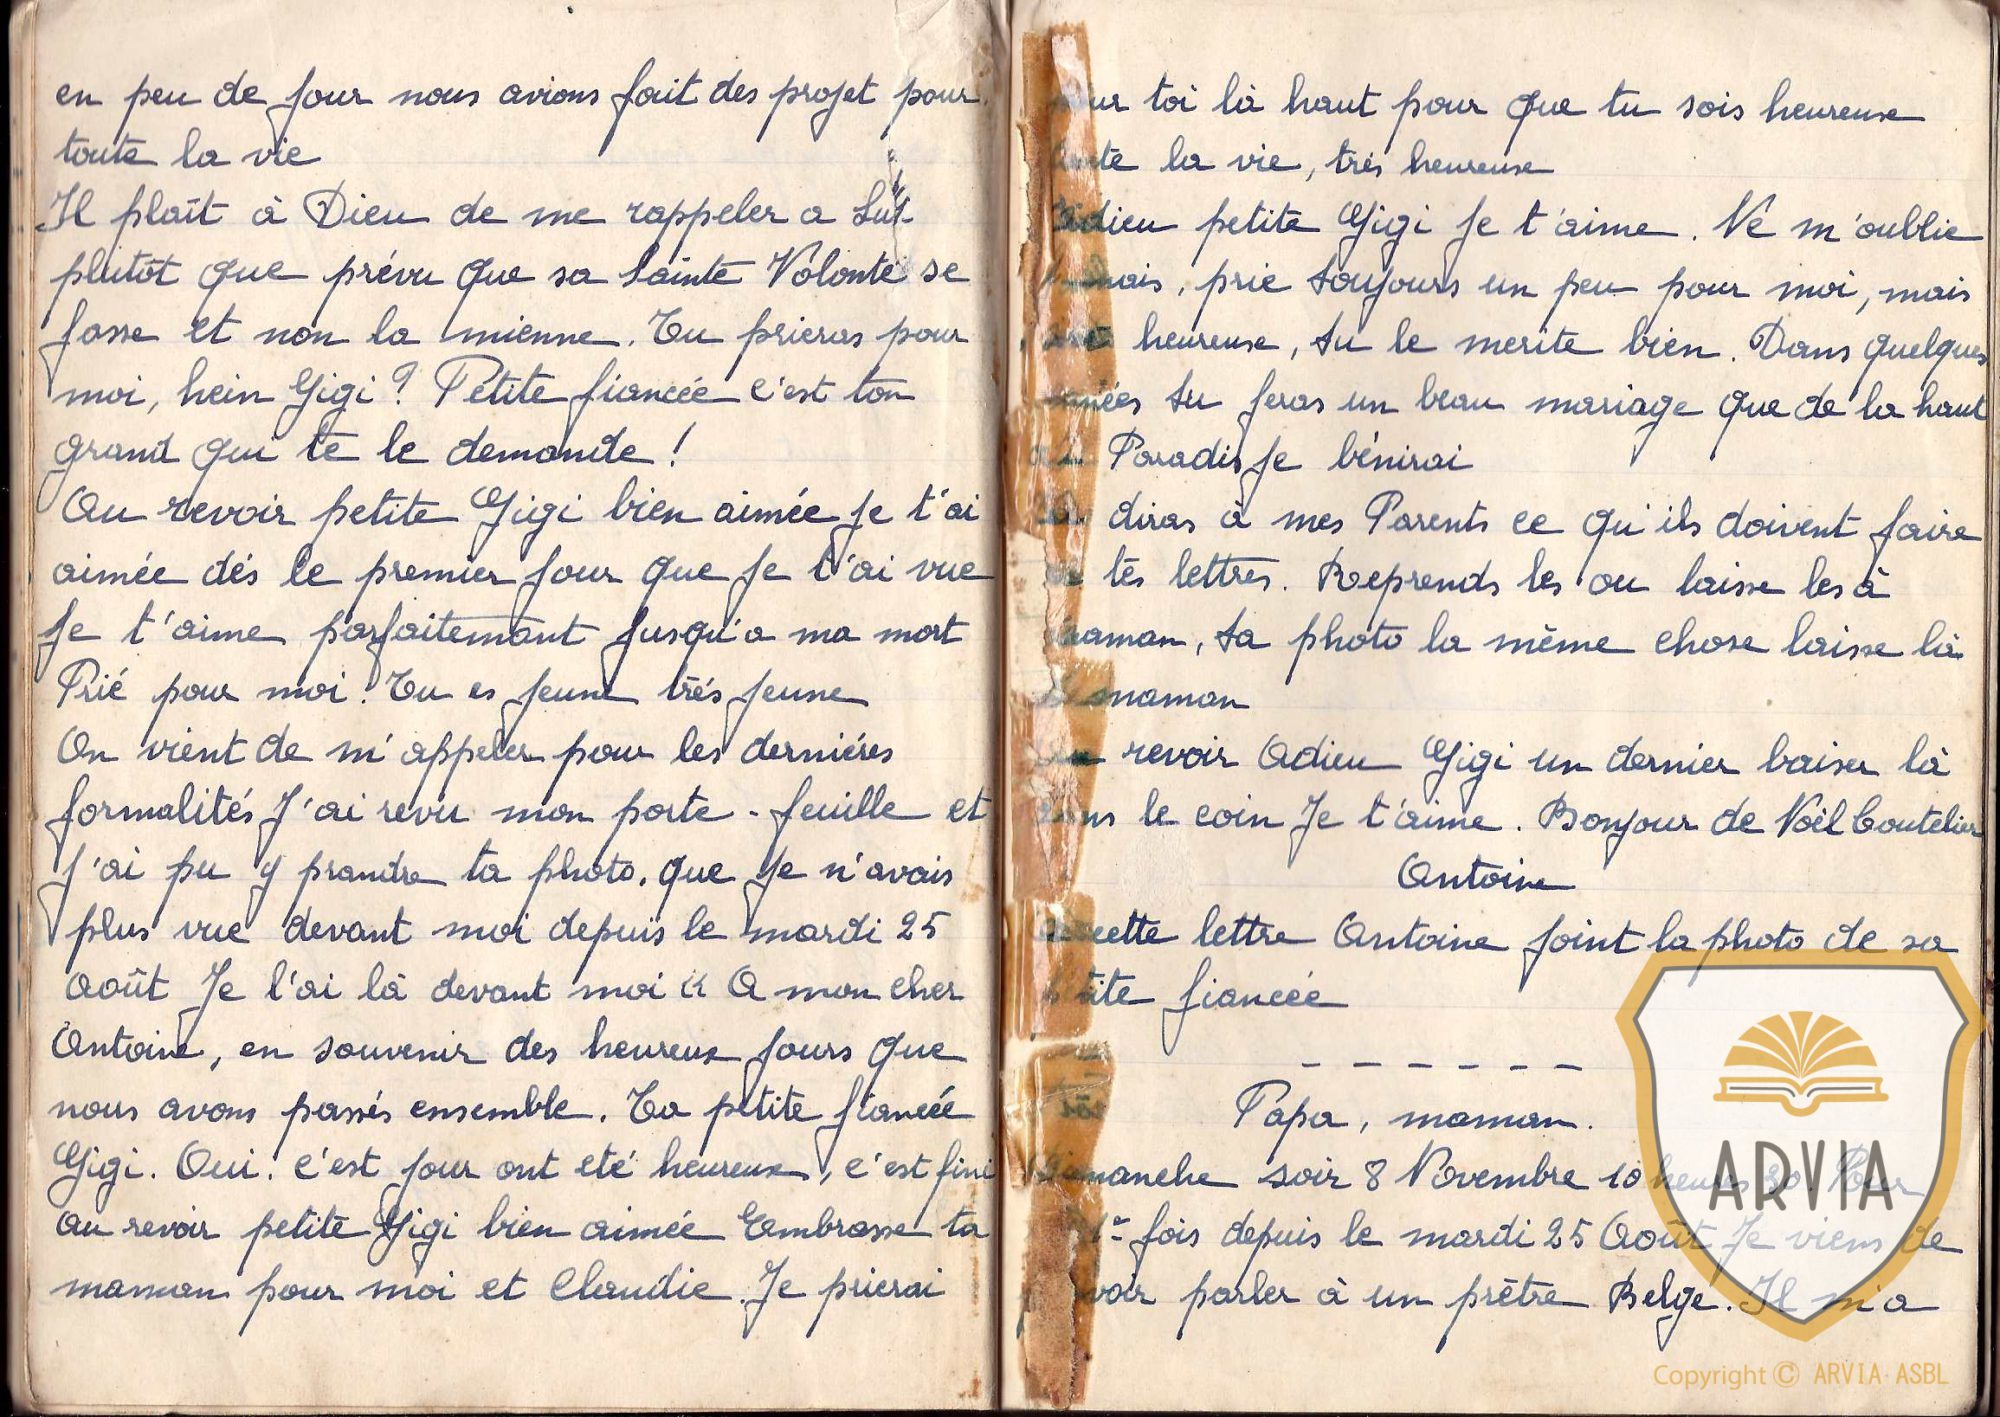 en peu de jour nous avions fait des projet pour
toute la vie
Il plaît à Dieu de me rappeler a Lui
plutôt que prévu que sa Sainte Volonté se
fasse et non la mienne. Tu prieras pour
moi, hein Gigi? Petite fiancée c'est ton
grand qui te le demande!
Au revoir petite Gigi bien aimée je t'ai
aimée dés le premier jour que je t'ai vue
je t'aime parfaitemant jusqu'a ma mort
Prié pour moi! Tu es jeune trés jeune
On vient de m'appeler pour les derniéres
formalités J'ai revu mon porte-feuille et
j'ai pu y prandre ta photo, que je n'avais
plus vue devant moi depuis le mardi 25
Août Je l'ai là devant moi « A mon cher
Antoine, en souvenir des heureux jours que
nous avons passés ensemble. Ta petite fiancée
Gigi. Oui! c'est jour ont eté heureux, c'est fini
au revoir petite Gigi bien aimée Embrasse ta
maman pour moi et Claudie. Je prierai
toi là haut pour que tu sois heureuse
la vie, trés heureuse
Adieu petite Gigi je t'aime. Ne m'oublie
prie toujours un peu pour moi, mais
heureuse, tu le merite bien. Dans quelques
années tu feras un beau mariage que de la haut
Paradis je bénirai
diras à mes Parents ce qu'ils doivent faire
tes lettres. Reprends les ou laisse les à
maman, ta photo la même chose laisse là
maman
revoir Adieu Gigi un dernier baiser là
dans le coin Je t'aime. Bonjour de Noël Coutelier
Antoine
cette lettre Antoine joint la photo de sa
fiancée
- - - - - - -
Papa, maman.
Dimanche soir 8 Novembre 10 heures 30 Pour
fois depuis le mardi 25 Août Je viens de
parler à un prêtre Belge. Il m'a
ARVIA
Copyright © ARVIA-ASBL